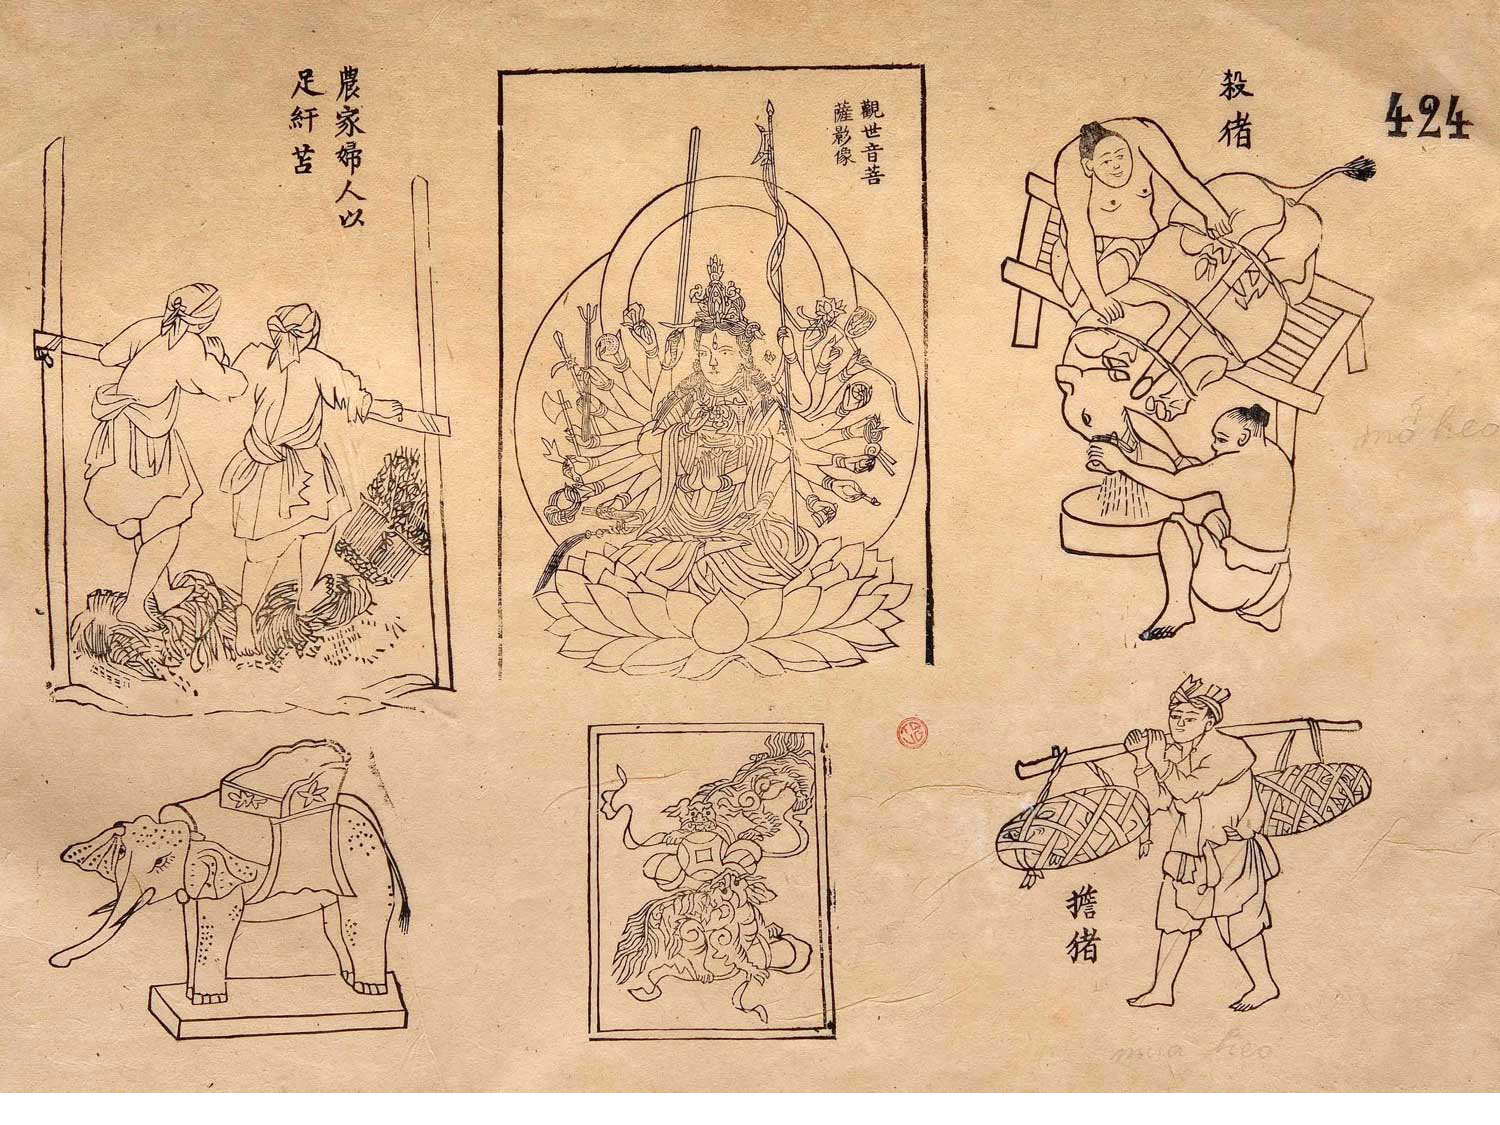 農家婦人以
足紆苫
觀世音菩
薩影像
殺猪
424
mổ heo
擔猪
mua heo